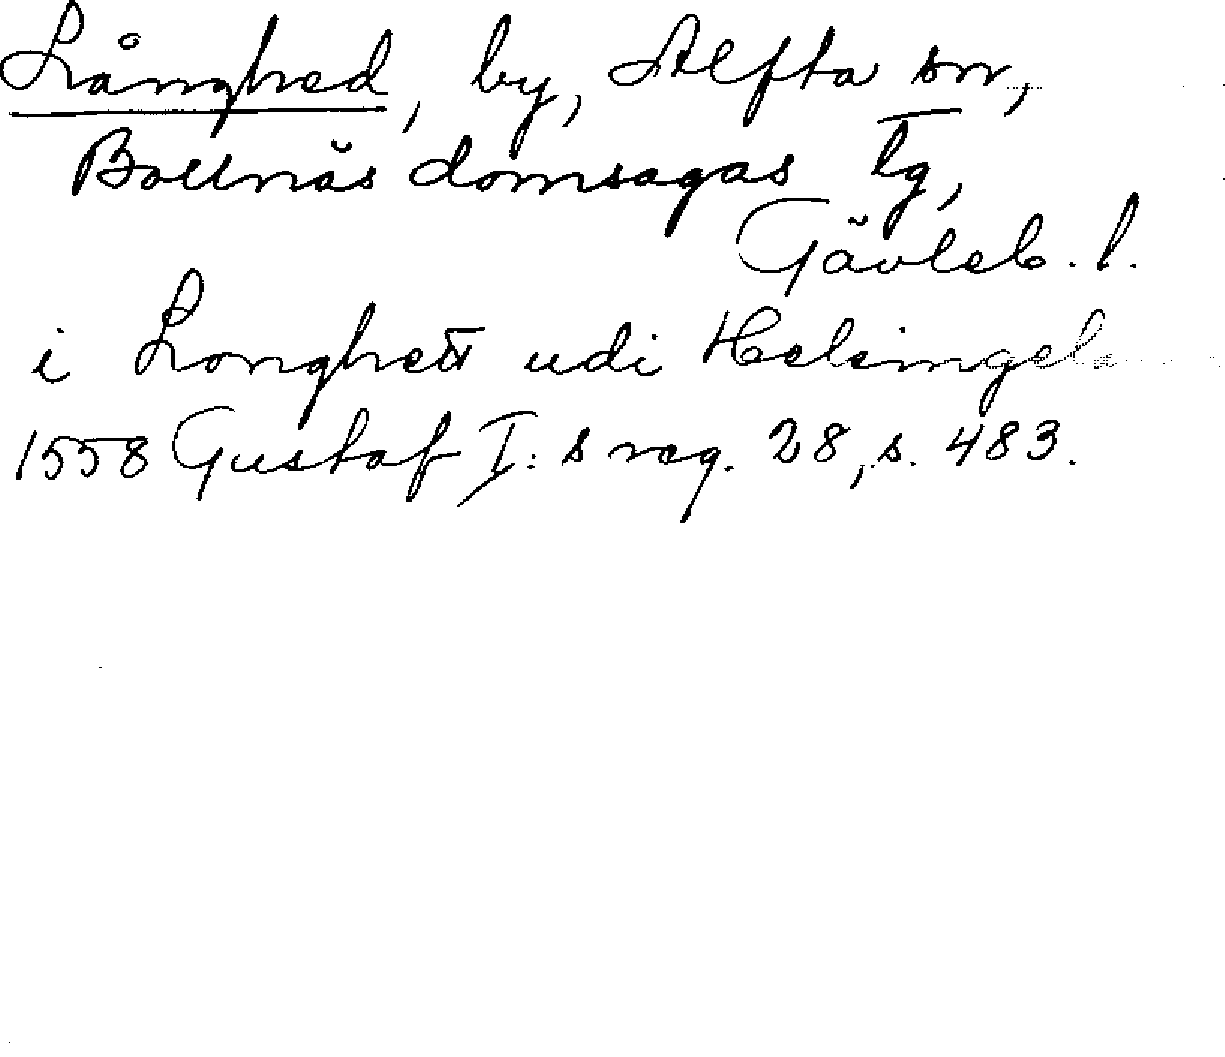 Långhed, by, Alfta sn,
Bollnäs domsagas tg,
Gävleb. l.
i Longhett udi Helsingela
1558 Gustaf I:s reg. 28, s. 483.